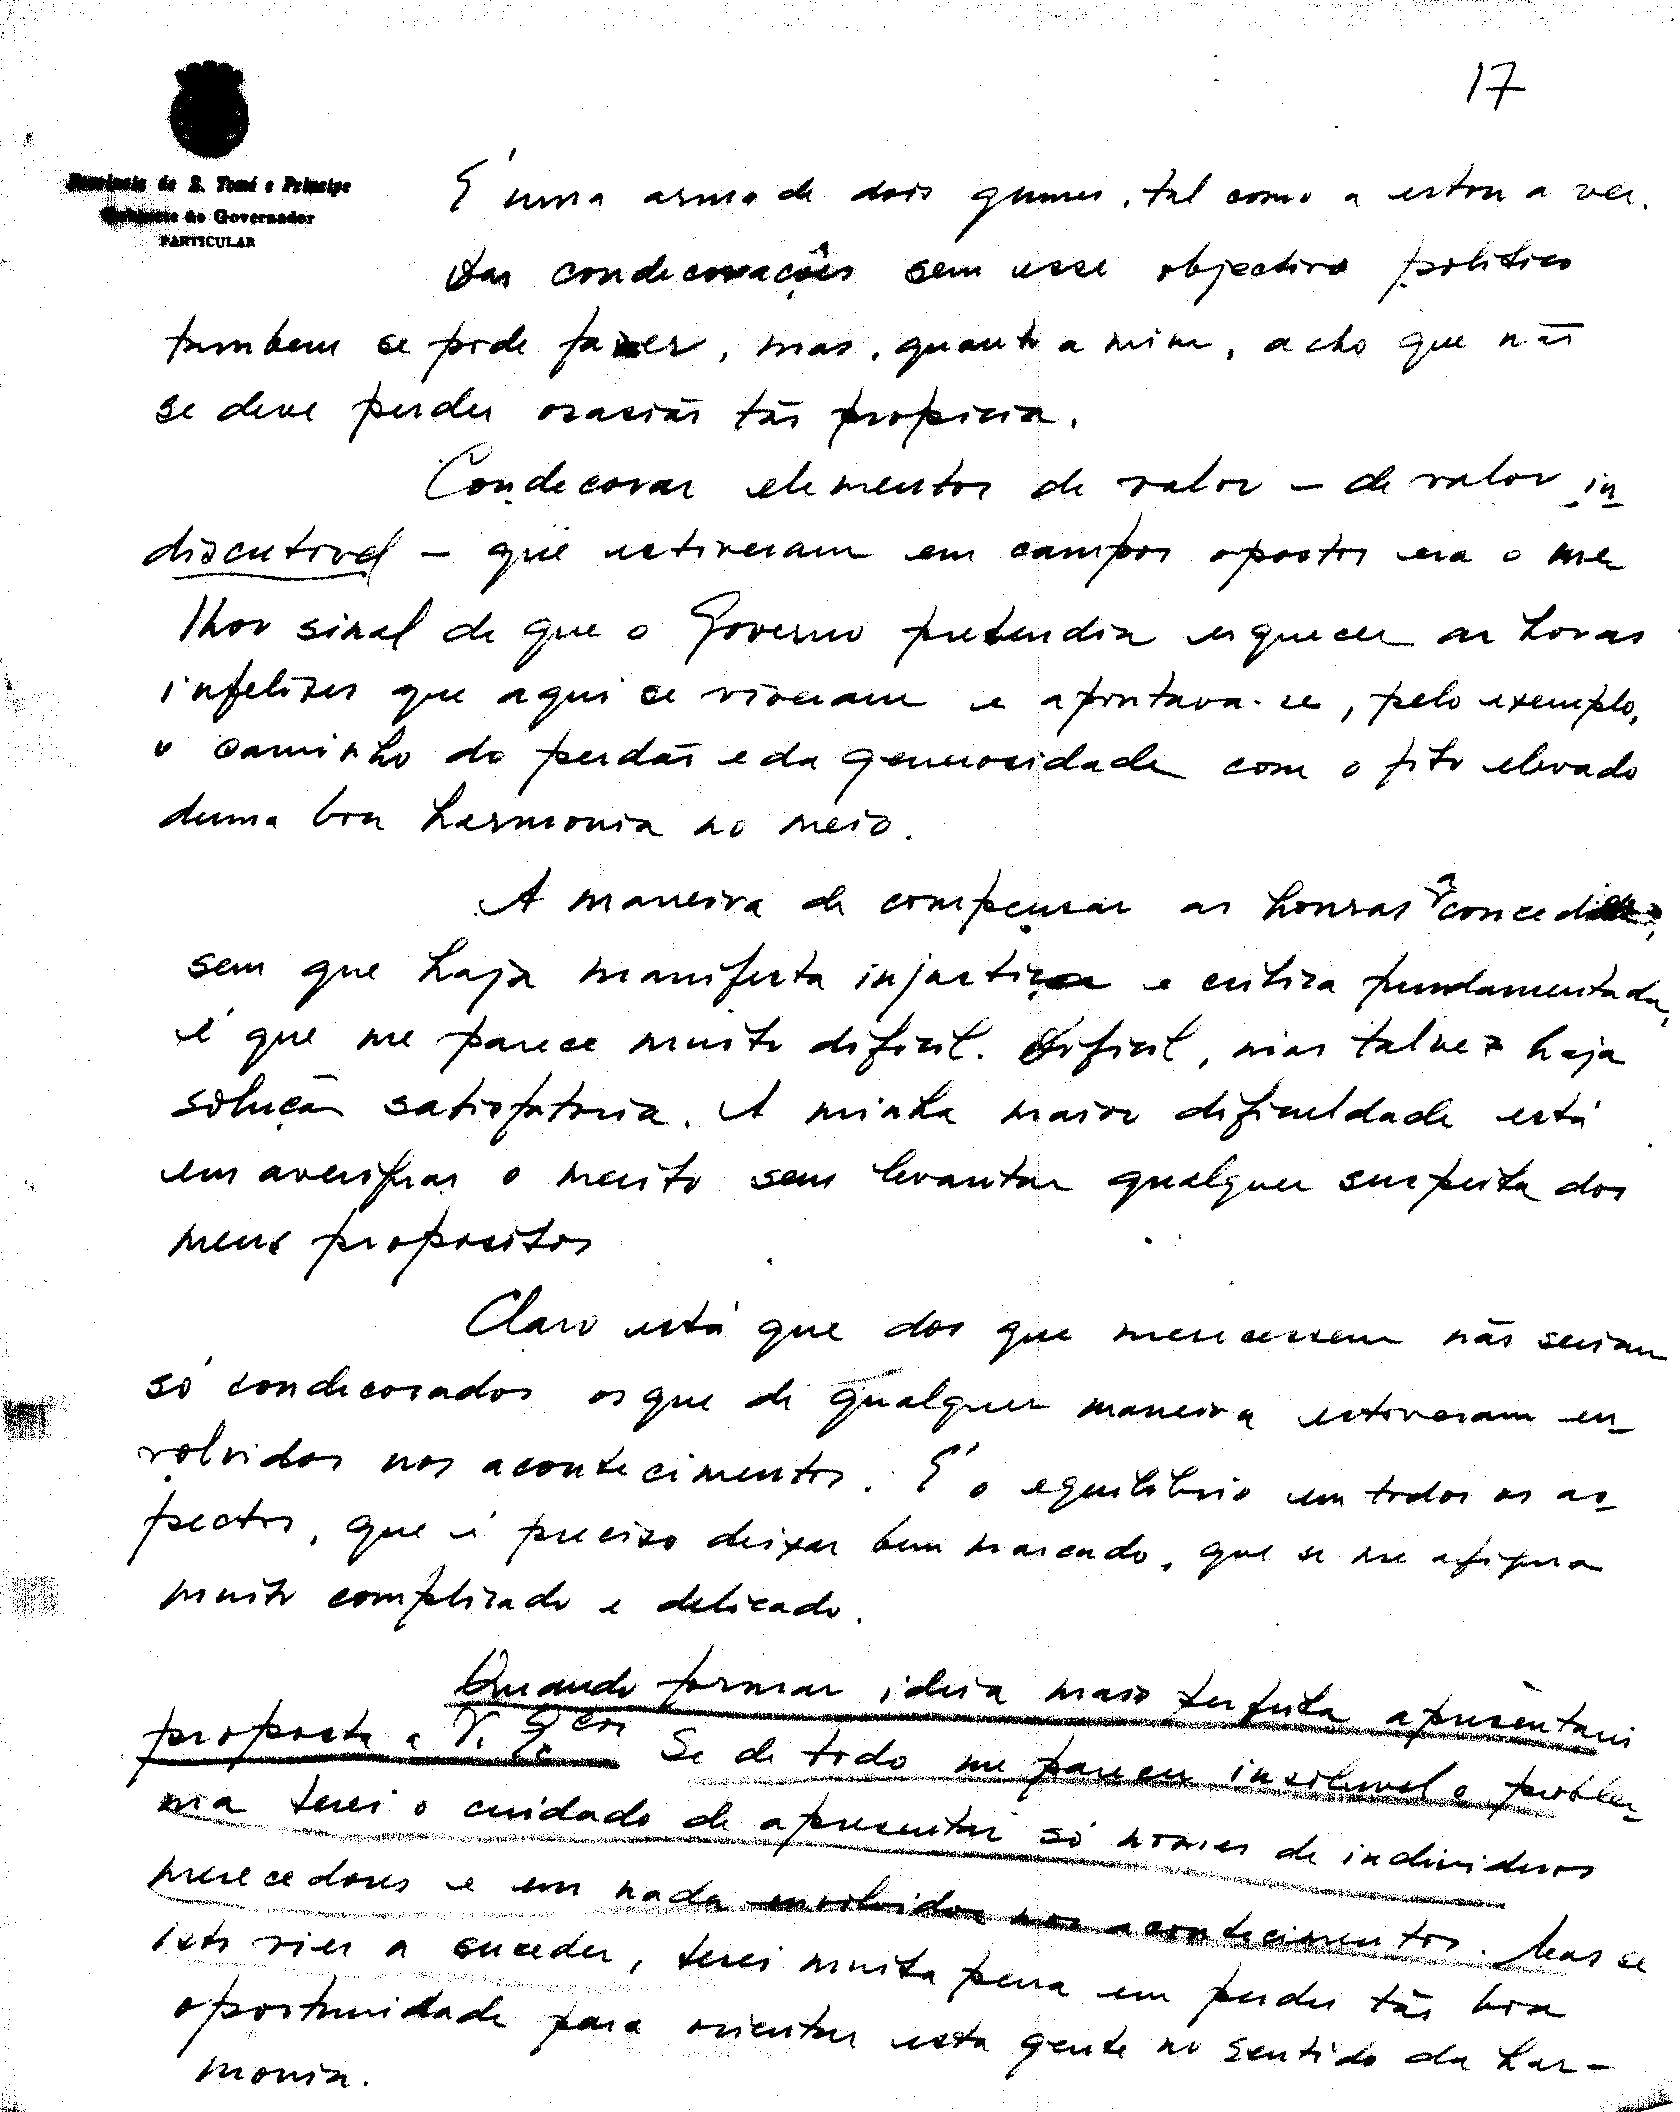 17
Provincia de S. Tomé e Principe
Gabinete do Governador
PARTICULAR
É uma arma de dois gumes, tal como a estou a ver.
Dar condecorações sem esse objectivo politico
tambem se pode fazer, mas, quanto a mim, acho que não
se deve perder ocasião tão propicia.
Condecorar elementos de valor – de valor in-
discutivel – que estiveram em campos opostos era o me
lhor sinal de que o Governo pretendia esquecer as horas
infelizes que aqui se viveram e apontava-se, pelo exemplo,
o caminho do perdão e da generosidade com o fito elevado
duma boa harmonia no meio.
A maneira de compensar as honras a conceder,
sem que haja manifesta injustiça e critica fundamentada,
é que me parece muito dificil. Dificil, mas talvez haja
solução satisfatoria. A minha maior dificuldade está
em averiguar o merito sem levantar qualquer suspeita dos
meus propositos
Claro está que dos que merecessem não seriam
só condecorados os que de qualquer maneira estiveram en-
volvidos nos acontecimentos. É o equilibrio em todos os as-
pectos, que é preciso deixar bem marcado, que se me afigura
muito complicado e delicado.
Quando formar ideia mais perfeita apresentarei
proposta a V. Excia. Se de todo me parecer insoluvel o proble-
ma terei o cuidado de apresentar só nomes de individuos
merecedores e em nada envolvidos nos acontecimentos. Mas se
isto vier a suceder, terei muita pena em perder tão boa
oportunidade para orientar esta gente no sentido da har-
monia.